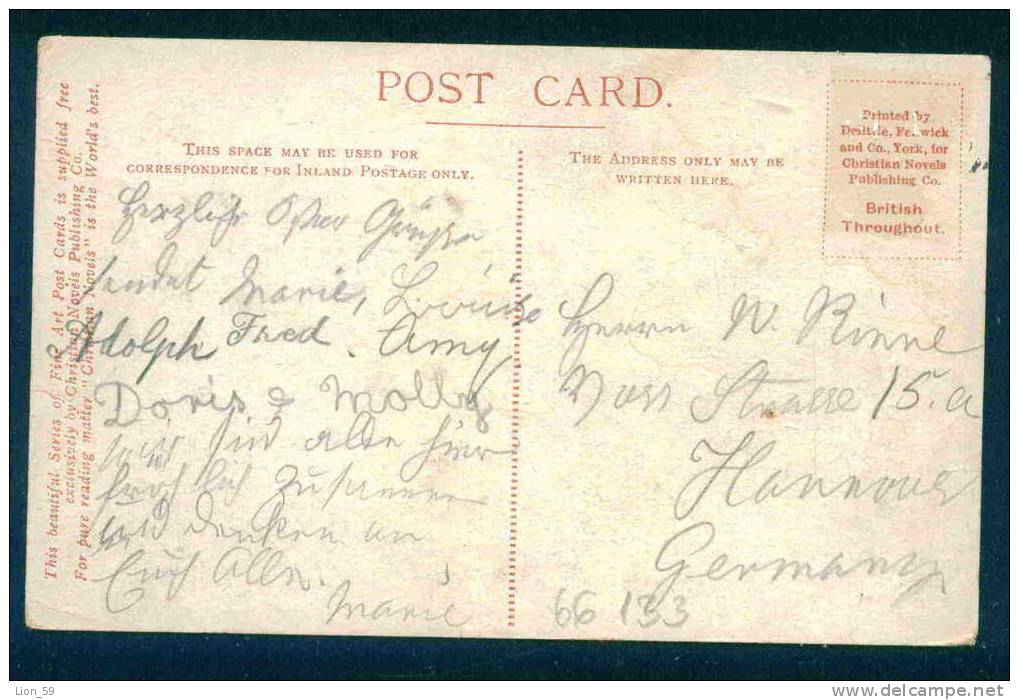 POST CARD.
THIS SPACE MAY BE USED FOR
CORRESPONDENCE FOR INLAND POSTAGE ONLY.
THE ADDRESS ONLY MAY BE
WRITTEN HERE.
Printed by
Delittle, Fenwick
and Co., York, for
Christian Novels
Publishing Co.
British
Throughout.
This beautiful Series of Fine Art Post Cards is supplied free
exclusively by Christian Novels Publishing Co.
For pure reading matter "Christian Novels" is the World's best.
Herzlich Oster Grüße
sendet Marie, Louise
Adolph Fred. Amy
Doris & Molly
wir sind alle hier
fröhlich zusammen
und denken an
Euch Alle.
Marie
Herrn W. Rinne
Voss Strasse 15. a
Hannover
Germany
66 133
Lion_59
www.delcampe.net